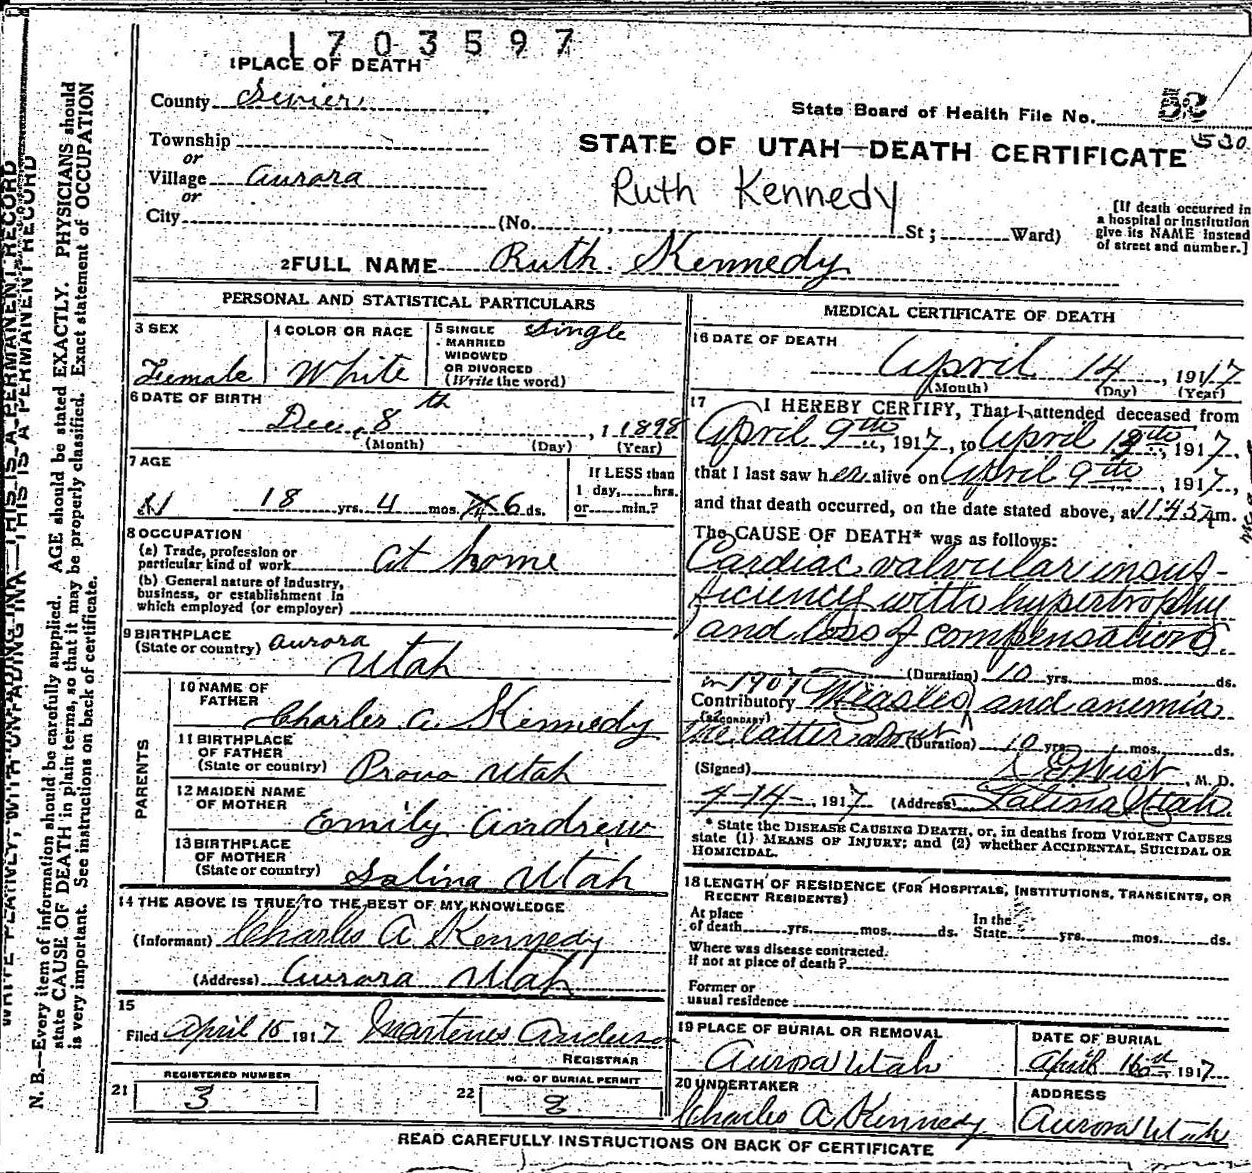 1703597
1 PLACE OF DEATH
County Sevier
State Board of Health File No. 53
530
Township
or
Village Aurora
or
STATE OF UTAH—DEATH CERTIFICATE
Ruth Kennedy
City (No. , St; Ward)
[If death occurred in
a hospital or institution
give its NAME instead
of street and number.]
2 FULL NAME Ruth Kennedy
PERSONAL AND STATISTICAL PARTICULARS
3 SEX
Female
4 COLOR OR RACE
White
5 SINGLE
MARRIED
WIDOWED
OR DIVORCED
(Write the word)
Single
6 DATE OF BIRTH
Dec, 8th, 1 1898
(Month) (Day) (Year)
7 AGE
18 yrs. 4 mos. 6 ds.
If LESS than
1 day, hrs.
or min.?
8 OCCUPATION
(a) Trade, profession or
particular kind of work At home
(b) General nature of industry,
business, or establishment in
which employed (or employer)
9 BIRTHPLACE
(State or country) Aurora
Utah
PARENTS
10 NAME OF
FATHER
Charles A. Kennedy
11 BIRTHPLACE
OF FATHER
(State or country) Provo Utah
12 MAIDEN NAME
OF MOTHER
Emily Andrew
13 BIRTHPLACE
OF MOTHER
(State or country) Salina Utah
14 THE ABOVE IS TRUE TO THE BEST OF MY KNOWLEDGE
(Informant) Charles A Kennedy
(Address) Aurora Utah
15
Filed April 15 1917
REGISTRAR
21 REGISTERED NUMBER
3
22 NO. OF BURIAL PERMIT
8
MEDICAL CERTIFICATE OF DEATH
16 DATE OF DEATH
April 14, 1917
(Month) (Day) (Year)
17 I HEREBY CERTIFY, That I attended deceased from
April 9th, 1917, to April 13th, 1917,
that I last saw her alive on April 9th, 1917,
and that death occurred, on the date stated above, at 11:45 m.
The CAUSE OF DEATH* was as follows:
Cardiac valvular insuf-
ficiency with hypertrophy
and loss of compensation.
(Duration) 10 yrs. mos. ds.
in 1907
Contributory Measles and anemia
(SECONDARY)
the latter about (Duration) 10 yrs. mos. ds.
(Signed) West, M. D.
4-14-, 1917 (Address) Salina Utah
* State the DISEASE CAUSING DEATH, or, in deaths from VIOLENT CAUSES
state (1) MEANS OF INJURY; and (2) whether ACCIDENTAL, SUICIDAL OR
HOMICIDAL.
18 LENGTH OF RESIDENCE (FOR HOSPITALS, INSTITUTIONS, TRANSIENTS, OR
RECENT RESIDENTS)
At place
of death yrs. mos. ds.
In the
State yrs. mos. ds.
Where was disease contracted.
if not at place of death?
Former or
usual residence
19 PLACE OF BURIAL OR REMOVAL
Aurora Utah
DATE OF BURIAL
April 16, 1917
20 UNDERTAKER
Charles A. Kennedy
ADDRESS
Aurora Utah
READ CAREFULLY INSTRUCTIONS ON BACK OF CERTIFICATE
WRITE PLAINLY, WITH UNFADING INK—THIS IS A PERMANENT RECORD
THIS IS A PERMANENT RECORD
N. B.—Every item of information should be carefully supplied. AGE should be stated EXACTLY. PHYSICIANS should
state CAUSE OF DEATH in plain terms, so that it may be properly classified. Exact statement of OCCUPATION
is very important. See instructions on back of certificate.